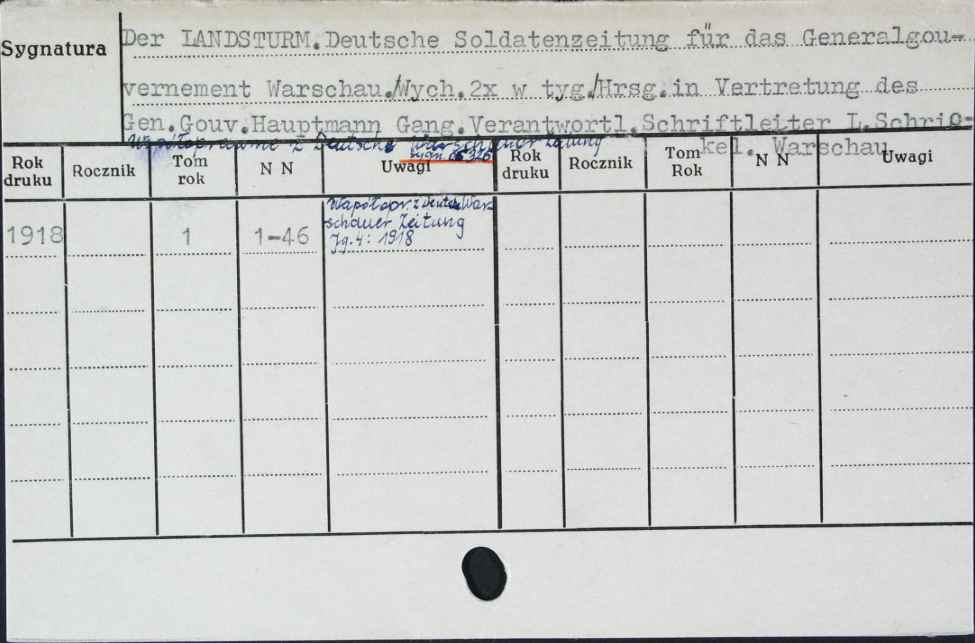 Sygnatura
Der LANDSTURM.Deutsche Soldatenzeitung für das Generalgou-
vernement Warschau./Wych.2x w tyg./Hrsg.in Vertretung des
Gen.Gouv.Hauptmann Gang.Verantwortl.Schriftleiter L.Schriß-
kel. Warschau
Współoprawne z Deutsche Warschauer Zeitung
Rok druku Rocznik Tom rok N N Uwagi Rok druku Rocznik Tom Rok N N Uwagi
1918 1 1-46
Współopr. z Deutsche War-
schauer Zeitung
Jg.4: 1918